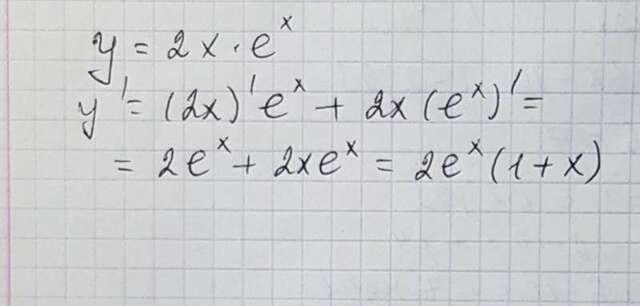 y = 2x · eˣ
y' = (2x)'eˣ + 2x(eˣ)' =
= 2eˣ + 2xeˣ = 2eˣ(1+x)